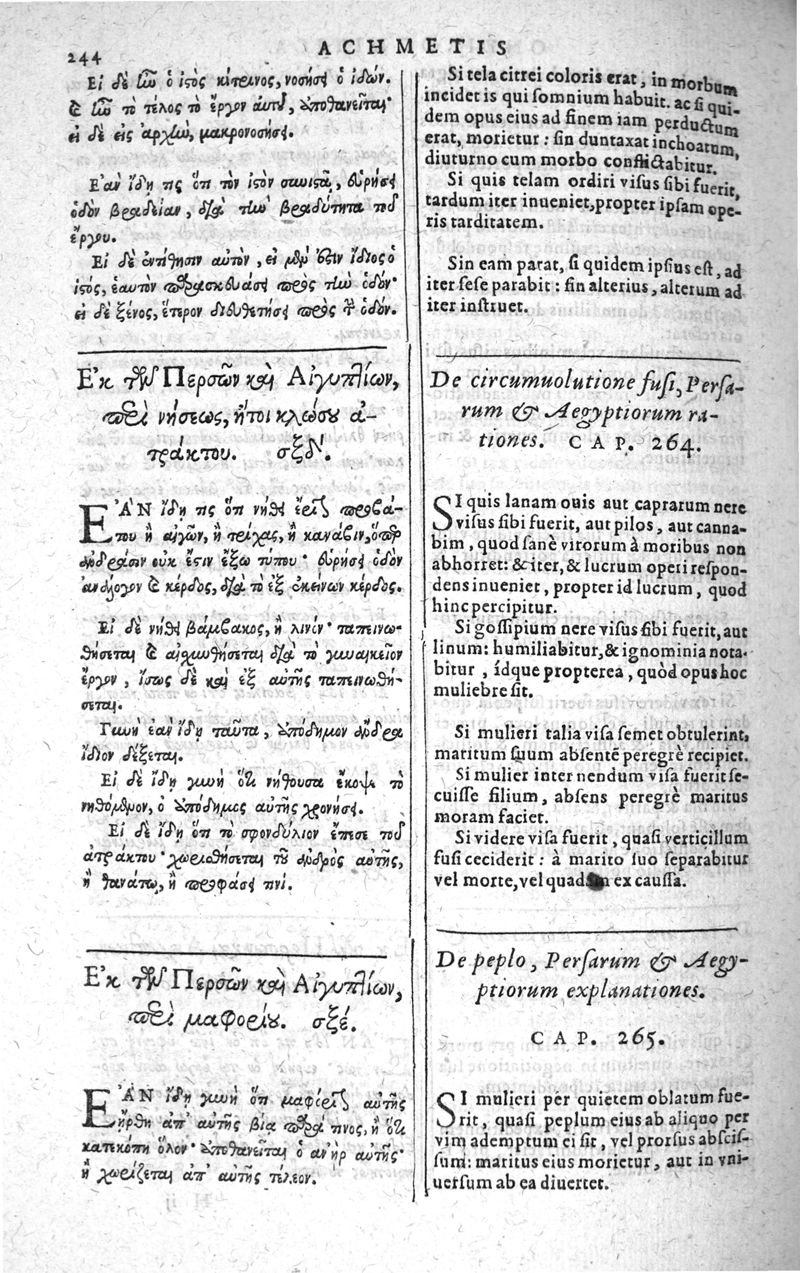 244
ACHMETIS
Εἰ δὲ ἦν ὁ ἱστὸς κίτρινος, νοσήσει ὁ ἰδών.
καὶ ἦν τὸ τέλος τὸ ἔργον αὐτοῦ, ἀποθανεῖται·
εἰ δὲ εἰς ἀρχὴν, μακρονοσήσει.
Ἐὰν ἴδῃ τις ὅτι τὸν ἱστὸν , εὑρήσει
ὁδὸν βραδεῖαν, διὰ τὴν βραδύτητα τοῦ
ἔργου.
Εἰ δὲ αὐτὸν, εἰ μὲν ἔστιν ἴδιος ὁ
ἱστὸς, ἑαυτὸν παρασκευάσει πρὸς τὴν ὁδόν·
εἰ δὲ ξένος, ἕτερον διευθετήσει πρὸς τὴν ὁδόν.
Ἐκ τῶν Περσῶν καὶ Αἰγυπτίων,
περὶ νήσεως, ἤτοι κλώσου ἀ-
τράκτου. σξδʹ.
ἘΑΝ ἴδῃ τις ὅτι νήθει ἔρια προβά-
του ἢ αἰγῶν, ἢ τρίχας, ἢ κανάβιν, ὅπερ
ἀνδράσιν οὐκ ἔστιν ἔξω τύπου· εὑρήσει ὁδὸν
ἀνάλογον καὶ κέρδος, διὰ τὸ ἐξ ἐκείνων κέρδος.
Εἰ δὲ νήθει βάμβακος, ἢ λινόν· ταπεινω-
θήσεται καὶ αἰσχυνθήσεται διὰ τὸ γυναικεῖον
ἔργον, ἴσως δὲ καὶ ἐξ αὐτῆς ταπεινωθή-
σεται.
Γυνὴ ἐὰν ἴδῃ ταῦτα, ἀπόδημον ἄνδρα
ἴδιον δέξεται.
Εἰ δὲ ἴδῃ γυνὴ ὅτι νήθουσα ἔκοψε τὸ
νηθόμενον, ὁ ἀπόδημος αὐτῆς χρονήσει.
Εἰ δὲ ἴδῃ ὅτι τὸ σφονδύλιον ἔπεσε τοῦ
ἀτράκτου· χωρισθήσεται τοῦ ἀνδρὸς αὐτῆς,
ἢ θανάτῳ, ἢ προφάσει τινί.
Ἐκ τῶν Περσῶν καὶ Αἰγυπτίων,
περὶ μαφορίου. σξέ.
ἘΑΝ ἴδῃ γυνὴ ὅτι αὐτῆς
ἤρθη ἀπ' αὐτῆς βίᾳ παρά τινος, ἢ ὅτι
κατεκόπη ὅλον· ἀποθανεῖται ὁ ἀνὴρ αὐτῆς·
ἢ χωρίζεται ἀπ' αὐτῆς τέλεον.
Si tela citrei coloris erat, in morbum
incidet is qui somnium habuit. ac si qui-
dem opus eius ad finem iam perductum
erat, morietur: sin duntaxat inchoatum,
diuturno cum morbo conflictabitur.
Si quis telam ordiri visus sibi fuerit,
tardum iter inueniet, propter ipsam ope-
ris tarditatem.
Sin eam parat, si quidem ipsius est, ad
iter sese parabit: sin alterius, alterum ad
iter instruet.
De circumuolutione fusi, Persa-
rum & Aegyptiorum ra-
tiones. CAP. 264.
SI quis lanam ouis aut caprarum nere
visus sibi fuerit, aut pilos, aut canna-
bim, quod sanè virorum à moribus non
abhorret: & iter, & lucrum operi respon-
dens inueniet, propter id lucrum, quod
hinc percipitur.
Si gossipium nere visus sibi fuerit, aut
linum: humiliabitur, & ignominia nota-
bitur, ídque propterea, quòd opus hoc
muliebre sit.
Si mulieri talia visa semet obtulerint,
maritum suum absentē peregrè recipiet.
Si mulier inter nendum visa fuerit se-
cuisse filium, absens peregrè maritus
moram faciet.
Si videre visa fuerit, quasi verticillum
fusi ceciderit: à marito suo separabitur
vel morte, vel quadam ex caussa.
De peplo, Persarum & Aegy-
ptiorum explanationes.
CAP. 265.
SI mulieri per quietem oblatum fue-
rit, quasi peplum eius ab aliquo per
vim ademptum ei sit, vel prorsus abscis-
sum: maritus eius morietur, aut in vni-
uersum ab ea diuertet.